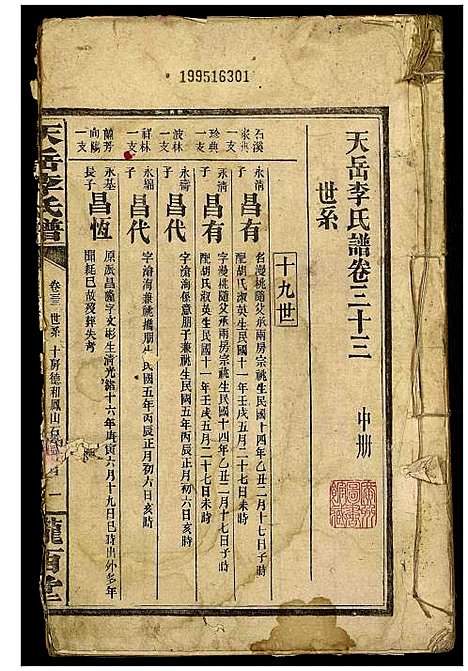 199516301
天岳李氏譜卷三十三
中册
世系
十九世
石溪
家典
一支
永清
子
昌有
名漫桃隨父承兩房宗祧生民國十四年乙丑二月十七日子時
配胡氏淑英生民國十一年壬戌五月二十七日未時
珍典
一支
永清
子
昌有
字漫桃隨父承兩房宗祧生民國十四年乙丑二月十七日子時
配胡氏淑英生民國十一年壬戌五月二十七日未時
波林
一支
永壽
子
昌代
字滄海係意朋子兼祧生民國五年丙辰正月初六日亥時
祥林
一支
永錫
子
昌代
字滄海兼祧攜朋
民國五年丙辰正月初六日亥時
蘭芳
向陽
一支
永基
長子
昌恆
原派昌隆字文彬生清光緒十六年庚寅六月十九日巳時出外多年
聞耗巳故殁葬失考
天岳李氏譜
卷三三
世系
十房德和鳳山石
一
隴西堂